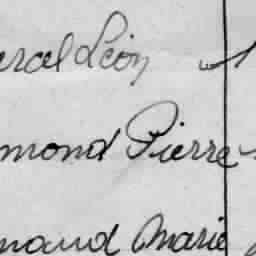 rcel Léon
mond Pierre
nand Marie